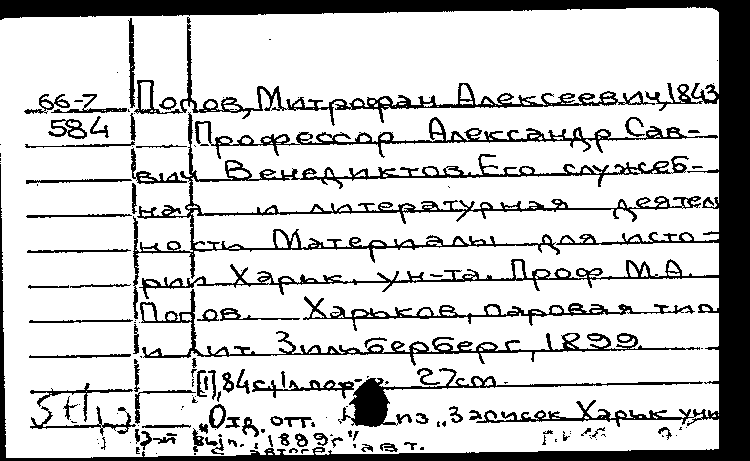 66-7 Попов, Митрофан Алексеевич, 1843
584 Профессор Александр Сав-
вич Венедиктов. Его служеб-
ная и литературная деятель
ность. Материалы для исто-
рии Харьк. ун-та. Проф. М.А.
Попов. Харьков, паровая тип.
и лит. Зильберберг, 1899.
[1], 84 с., 1 л. портр. 27 cm.
„Отд. отт. из „Записок Харьк. уни
вып. 1899 г."
авт.